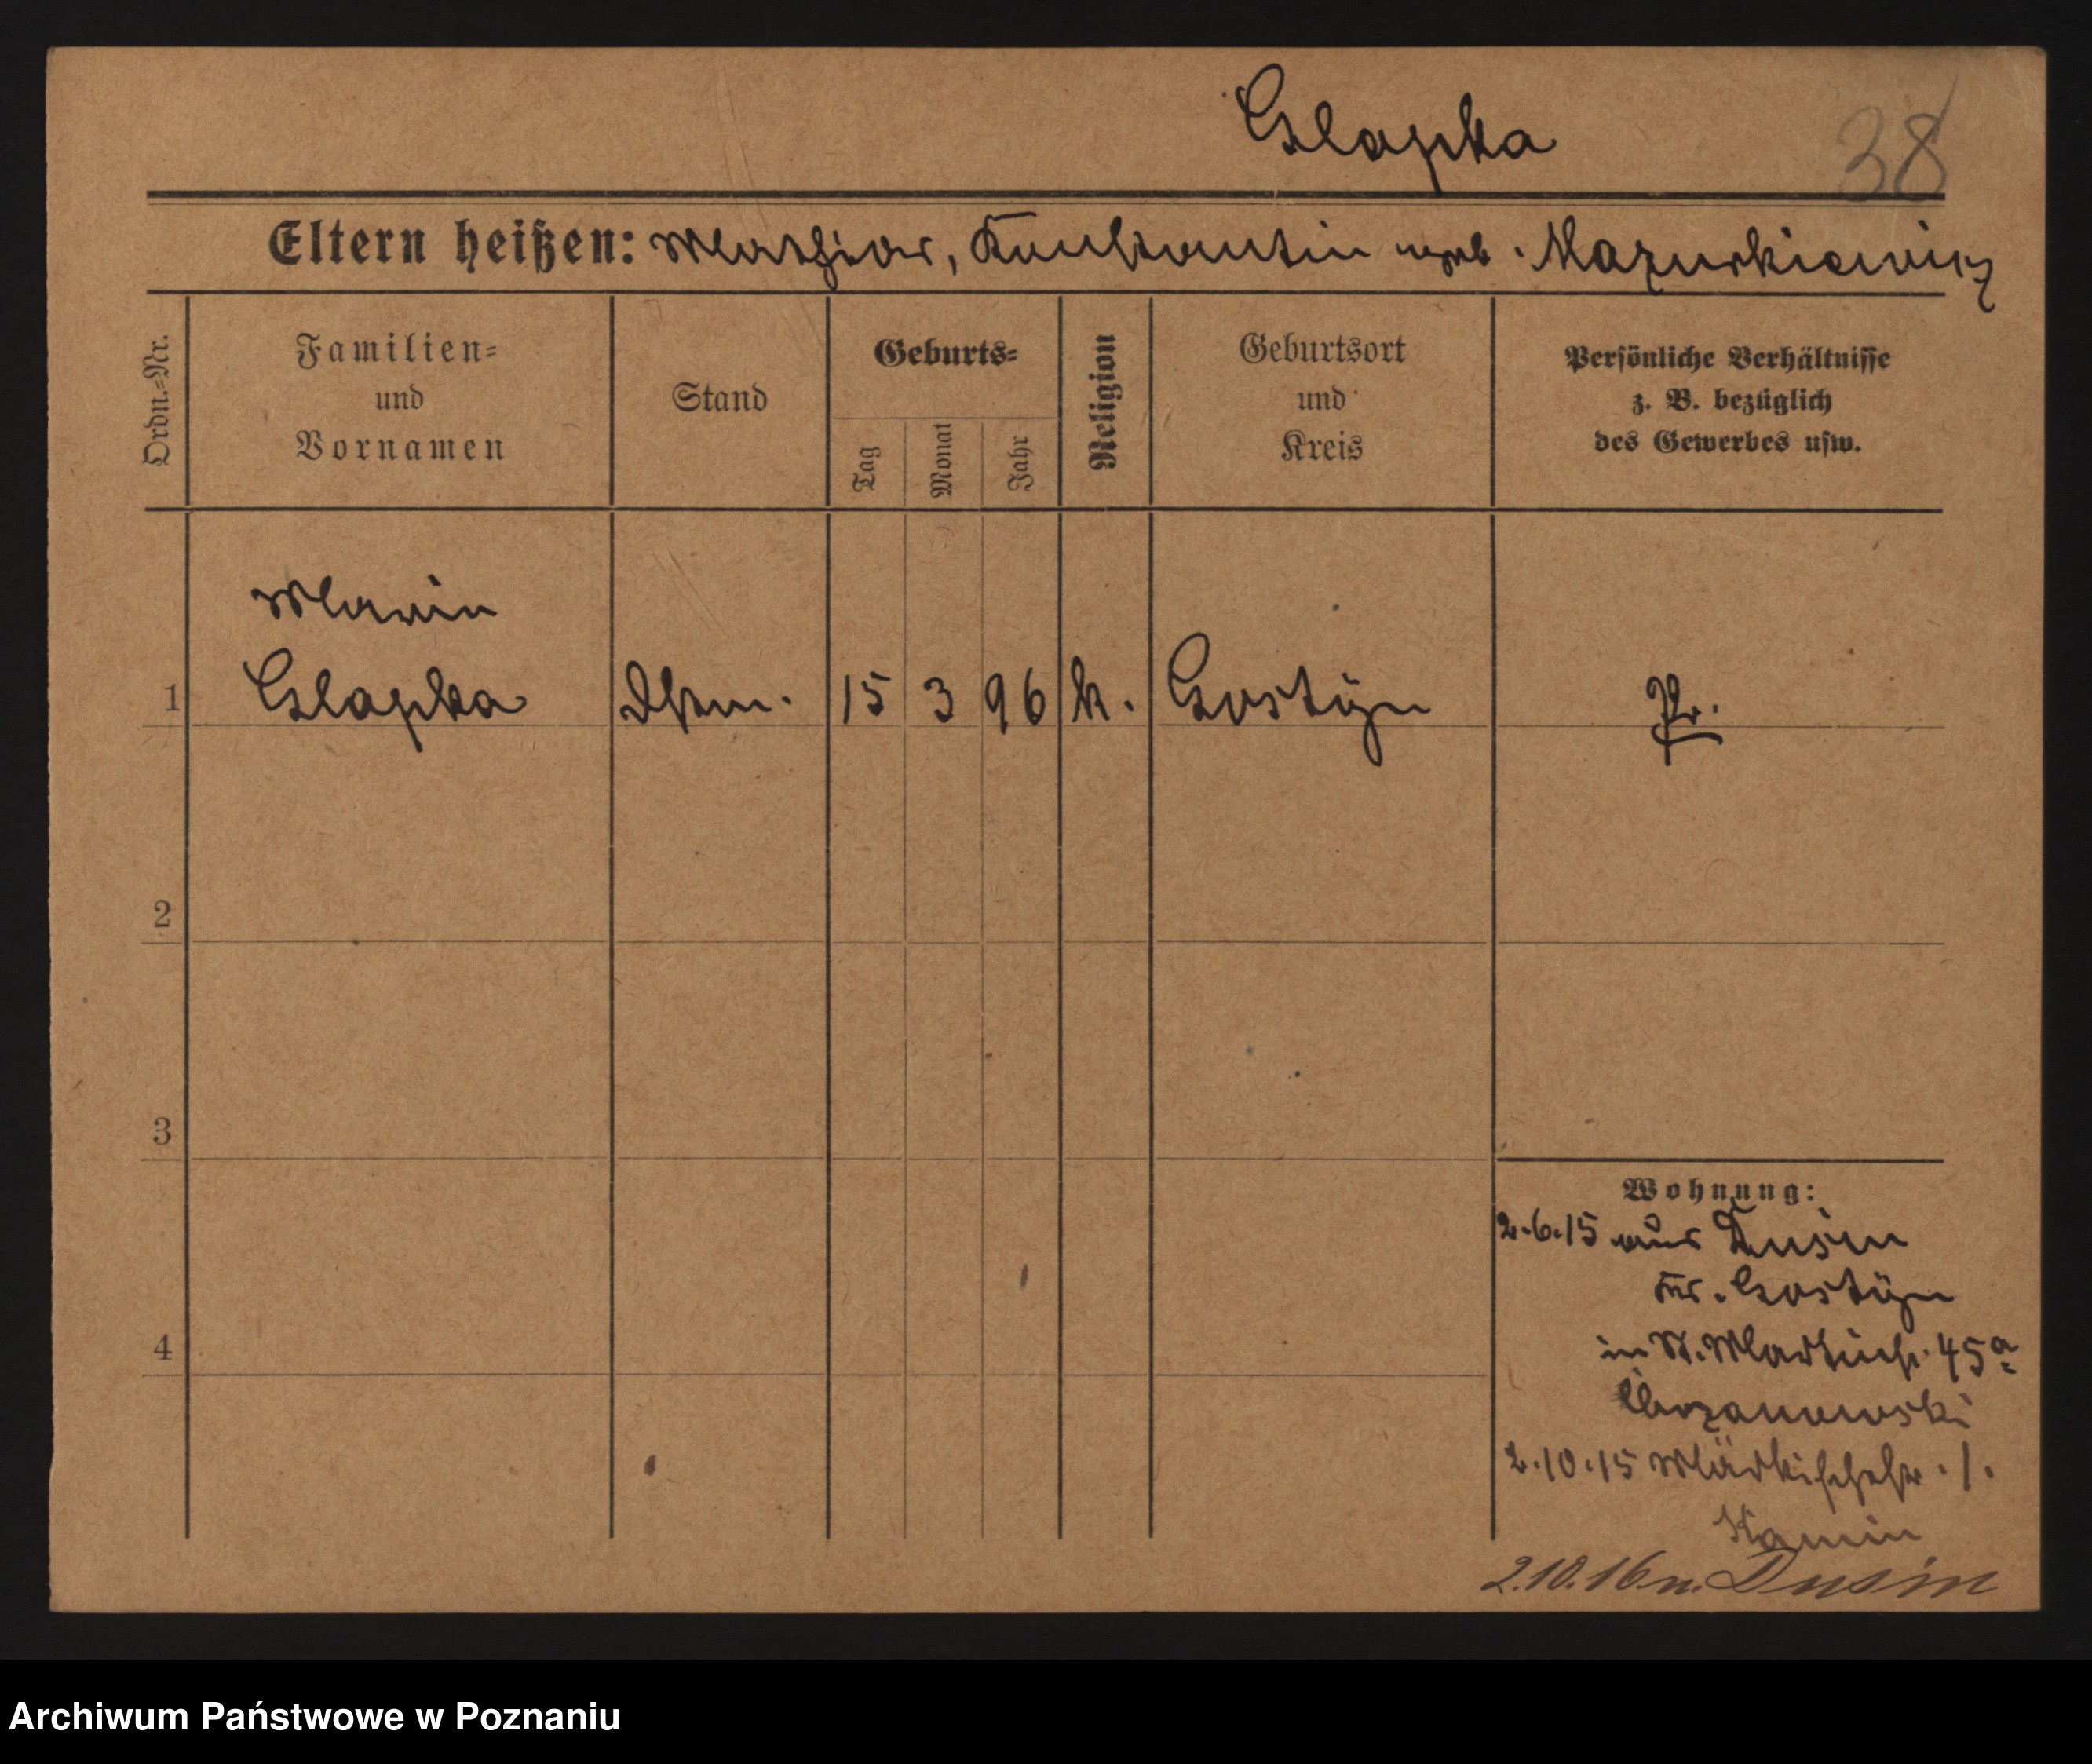 Glapka
38
Eltern heißen: Mathias, Konstantin geb. Mazurkiewicz
Ordn.=Nr.
Familien=
und
Vornamen
Stand
Geburts=
Tag
Monat
Jahr
Religion
Geburtsort
und
Kreis
Persönliche Verhältnisse
z. B. bezüglich
des Gewerbes usw.
Marie
1 Glapka 15 3 96 k. Gostÿn Pr.
2
3
4
Wohnung:
2.6.15 aus Dusin
Kr. Gostÿn
in St. Martinstr. 45a
2.10.15 Märkischestr. 1.
Kamin
2.10.16 n. Dusin
Archiwum Państwowe w Poznaniu